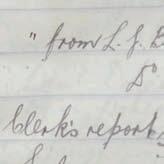 " from L. J. B
Do
Clerk's report,